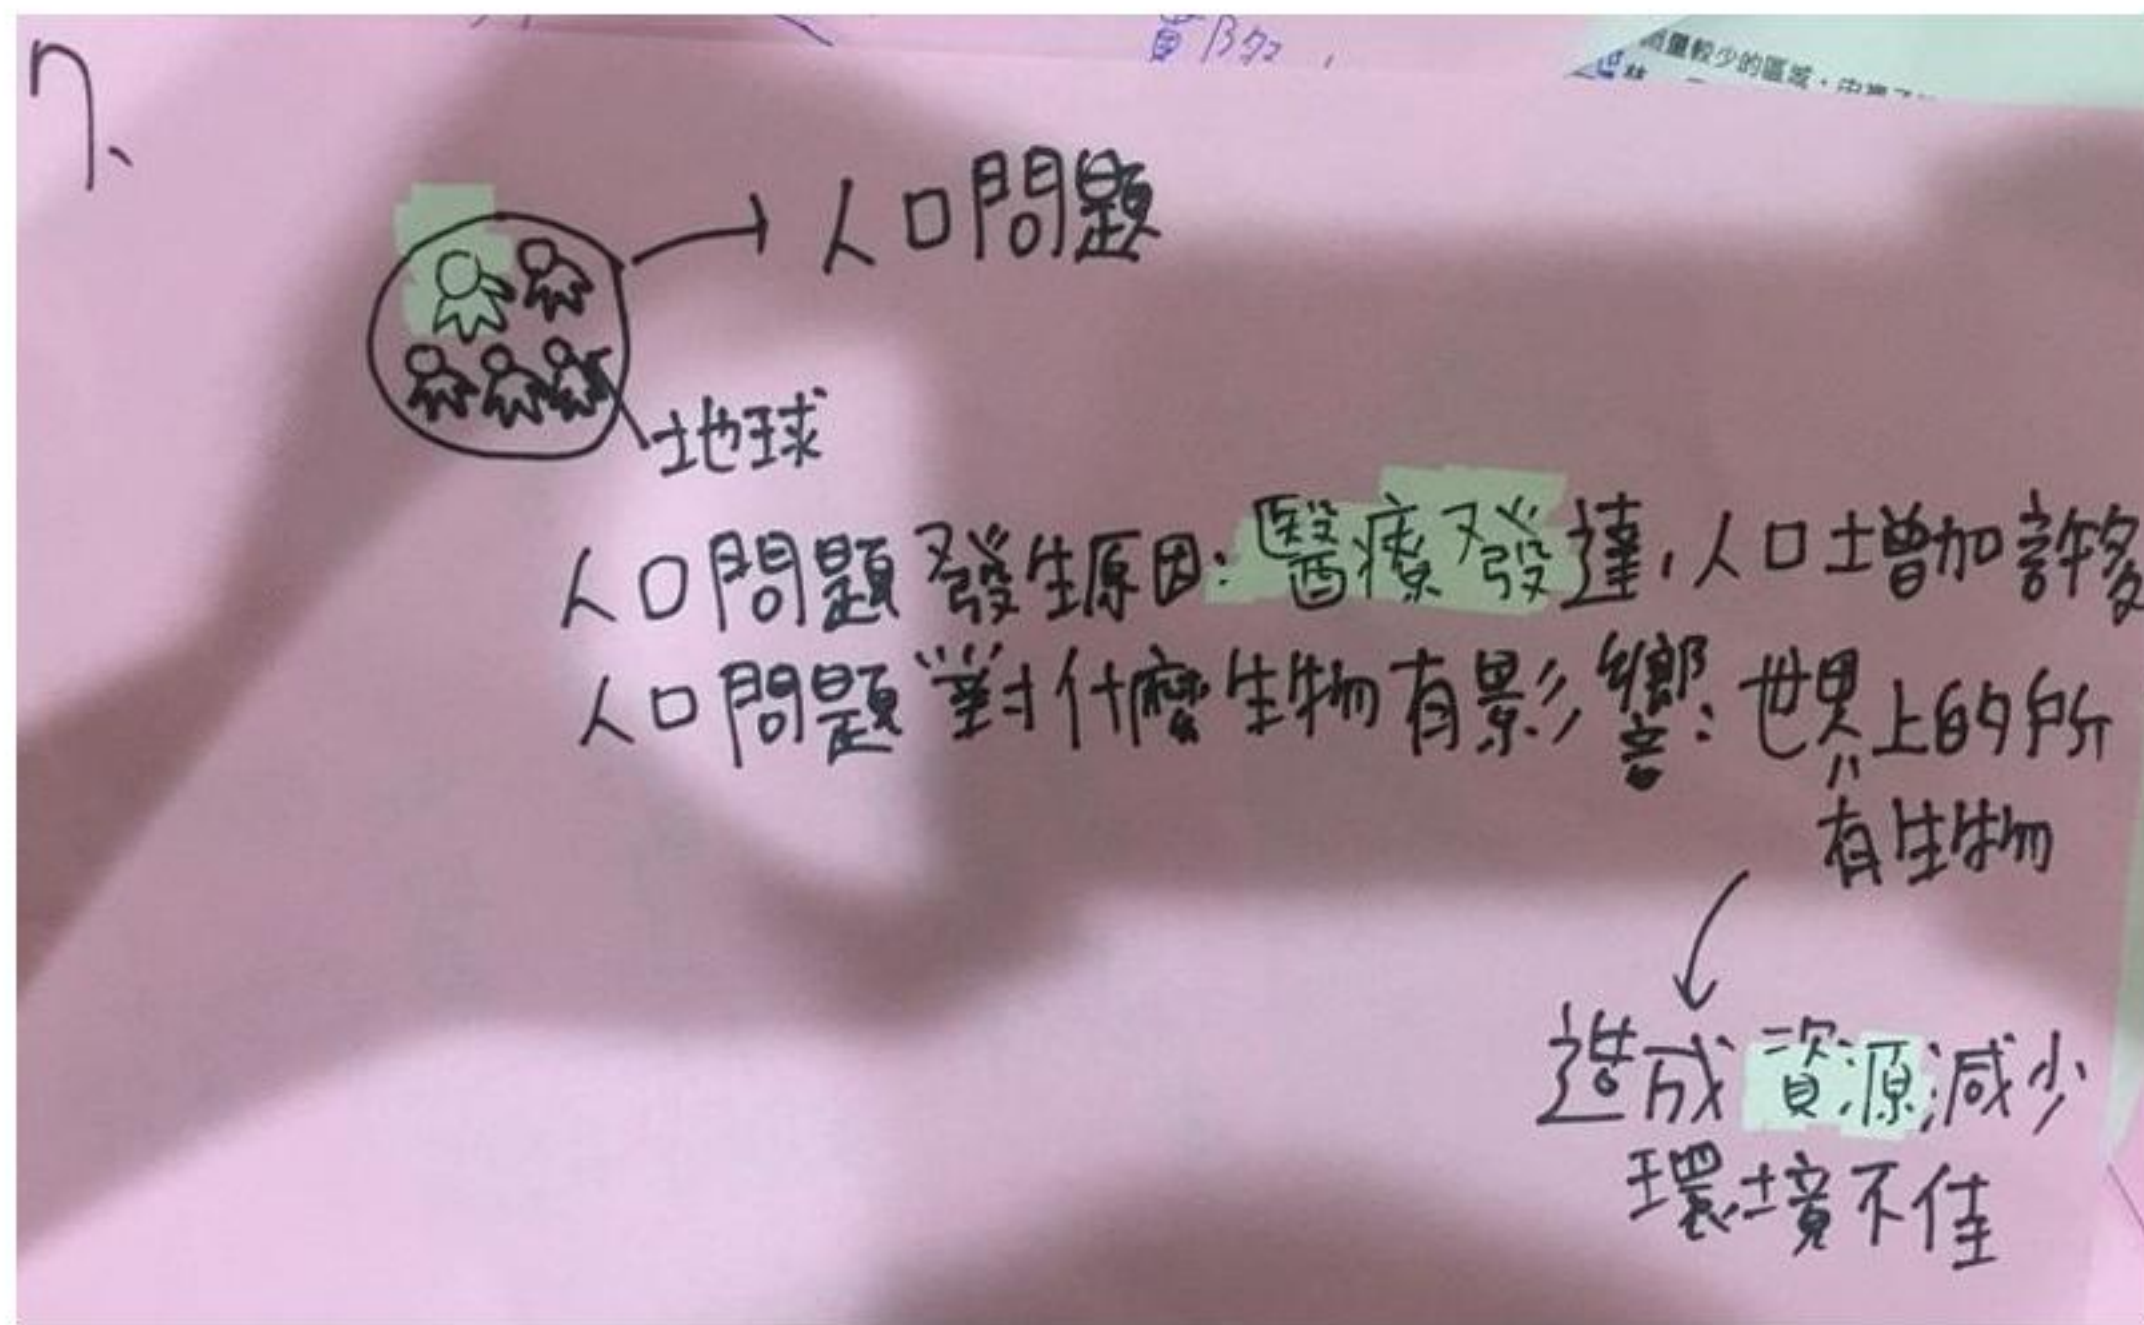 7、
人口問題
地球
人口問題發生原因:醫療發達,人口增加許多
人口問題對什麼生物有影響:世界上的所
有生物
造成資源減少
環境不佳
量較少的區域,由